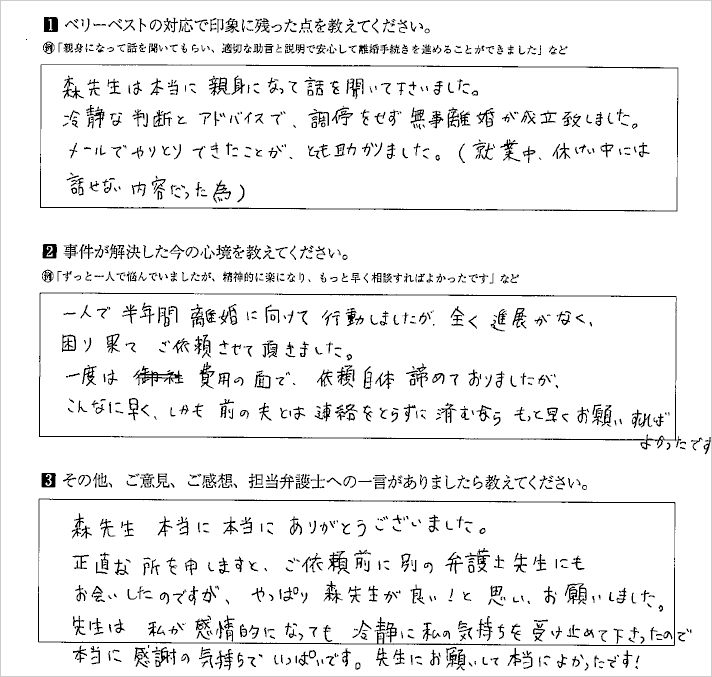 1 ベリーベストの対応で印象に残った点を教えてください。
例「親身になって話を聞いてもらい、適切な助言と説明で安心して離婚手続きを進めることができました」など
森先生は本当に親身になって話を聞いて下さいました。
冷静な判断とアドバイスで、調停をせず無事離婚が成立致しました。
メールでやりとりできたことが、とても助かりました。(就業中、休けい中には
話せない内容だった為)
2 事件が解決した今の心境を教えてください。
例「ずっと一人で悩んでいましたが、精神的に楽になり、もっと早く相談すればよかったです」など
一人で半年間離婚に向けて行動しましたが、全く進展がなく、
困り果てご依頼させて頂きました。
一度は御社費用の面で、依頼自体諦めておりましたが、
こんなに早く、しかも前の夫とは連絡をとらずに済むなら もっと早くお願いすれば
よかったです
3 その他、ご意見、ご感想、担当弁護士への一言がありましたら教えてください。
森先生 本当に本当にありがとうございました。
正直な所を申しますと、ご依頼前に別の弁護士先生にも
お会いしたのですが、やっぱり森先生が良い!と思い、お願いしました。
先生は私が感情的になっても冷静に私の気持ちを受け止めて下さったので
本当に感謝の気持ちでいっぱいです。先生にお願いして本当によかったです!